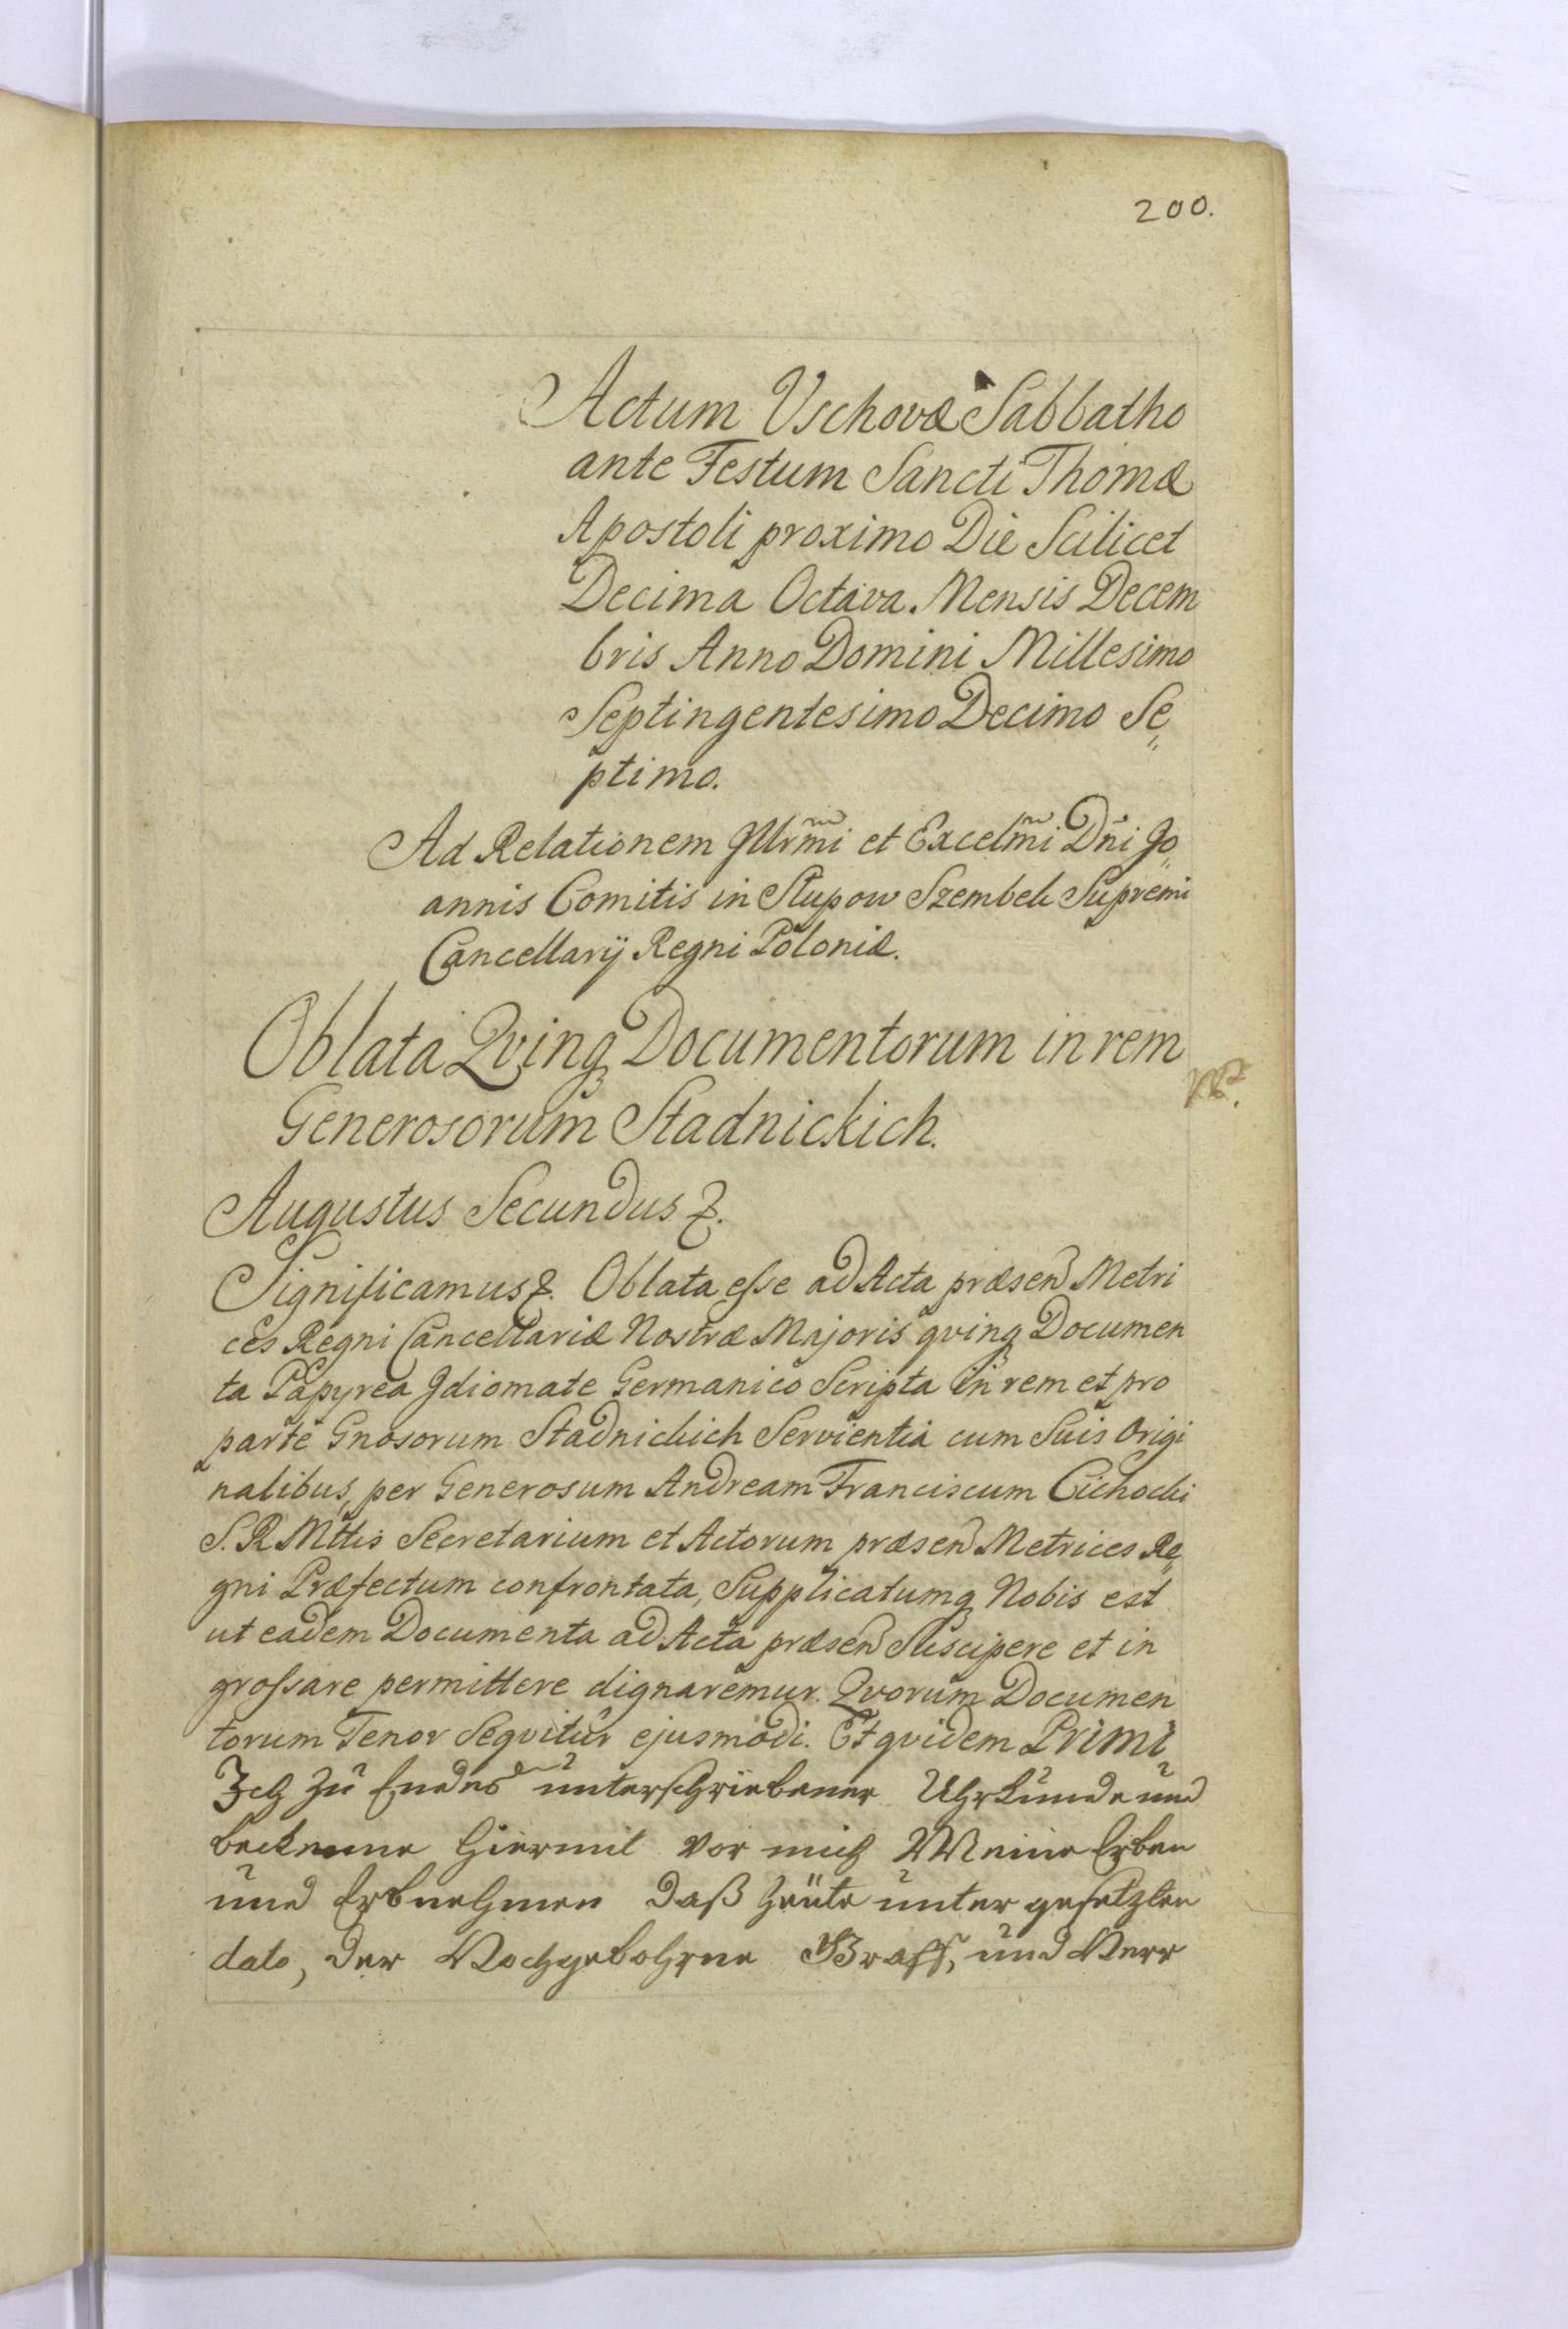 200.
Actum Vschovæ Sabbatho
ante Festum Sancti Thomæ
Apostoli proximo Die Scilicet
Decima Octava Mensis Decem
bris Anno Domini Millesimo
Septingentesimo Decimo Se„
ptimo.
Ad Relationem Jllrmi et Excelmi Dñi Jo„
annis Comitis in Słupow Szembek Supremi
Cancellarÿ Regni Poloniæ.
Oblata Qvinqꝫ Documentorum in rem
Generosorum Stadnickich.
Augustus Secundus &.
Significamus &. Oblata esse ad Acta præsen Metri
ces Regni Cancellariæ Nostræ Majoris qvinqꝫ Documen
ta Papyrea Jdiomate Germanico Scripta in rem et pro
parte Gnosorum Stadnickich Servientia cum Suis Origi
nalibus, per Generosum Andream Franciscum Cichocki
S. R Mttis Secretarium et Actorum præsen Metrices Re„
gni Præfectum confrontata, Supplicatumqꝫ Nobis est
ut eadem Documenta ad Acta præsen Suscipere et in
grossare permittere dignaremur. Qvorum Documen
torum Tenor Seqvitur ejusmodi. Et qvidem Primi
Ich zu Endes unterschriebener Uhrkunde und
beckenne hiermit vor mich Meine Erben
und Erbnehmen daß heüte unter gesetzten
dato, der Hochgebohrne Graff, und Herr